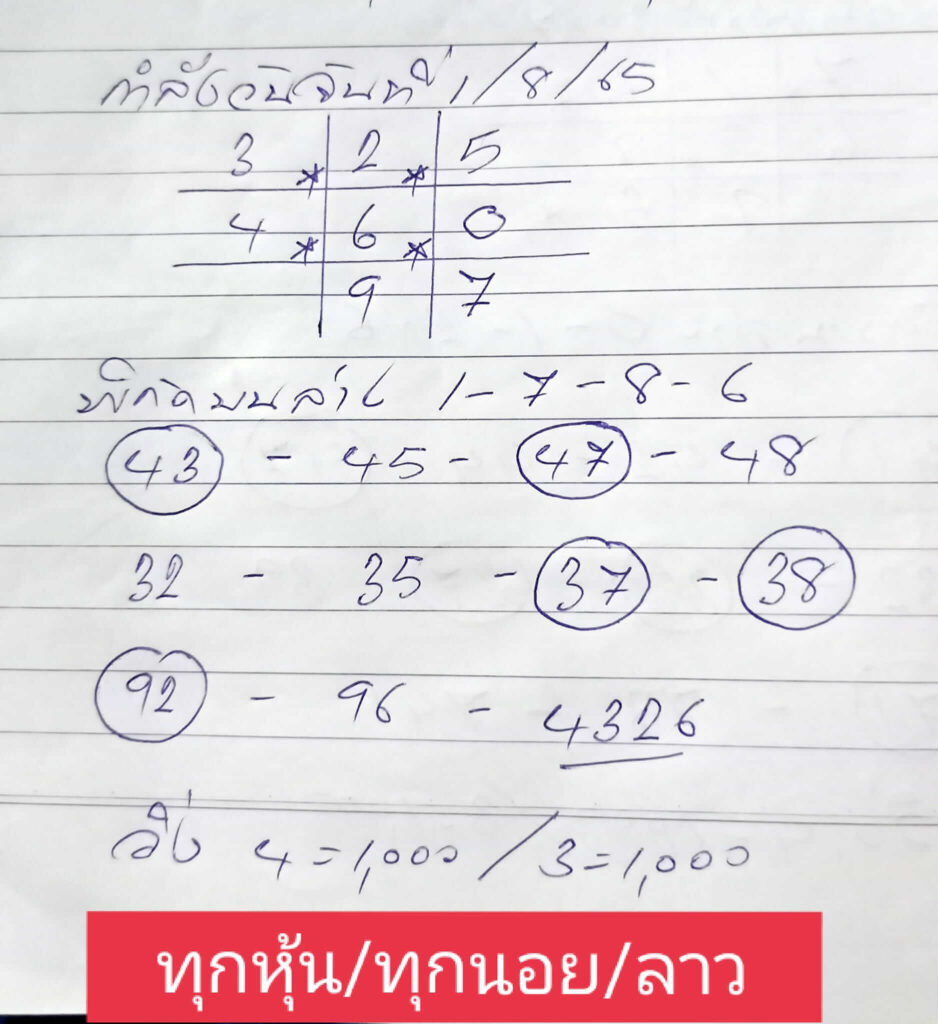 กำลังวันจันทร์ที่ 1/8/65
3 * 2 * 5
4 * 6 * 0
9 7
พิกัดบนล่าง 1-7-8-6
43 - 45 - 47 - 48
32 - 35 - 37 - 38
92 - 96 - 4326
วิ่ง 4=1,000 / 3=1,000
ทุกหุ้น/ทุกนอย/ลาว